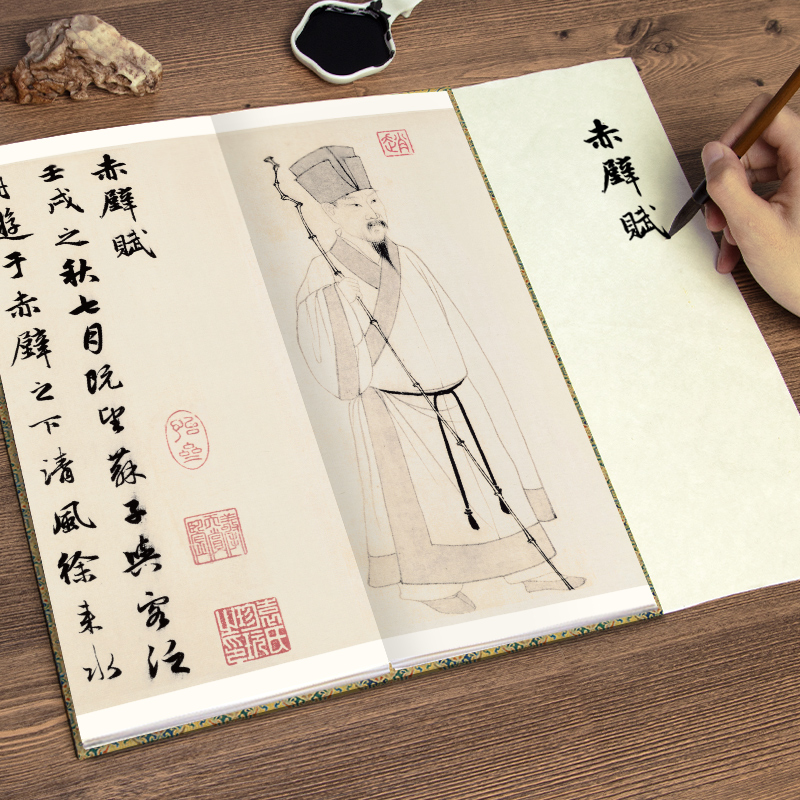 赤壁賦
赤壁賦
壬戌之秋七月既望蘇子與客泛
舟遊于赤壁之下清風徐来水